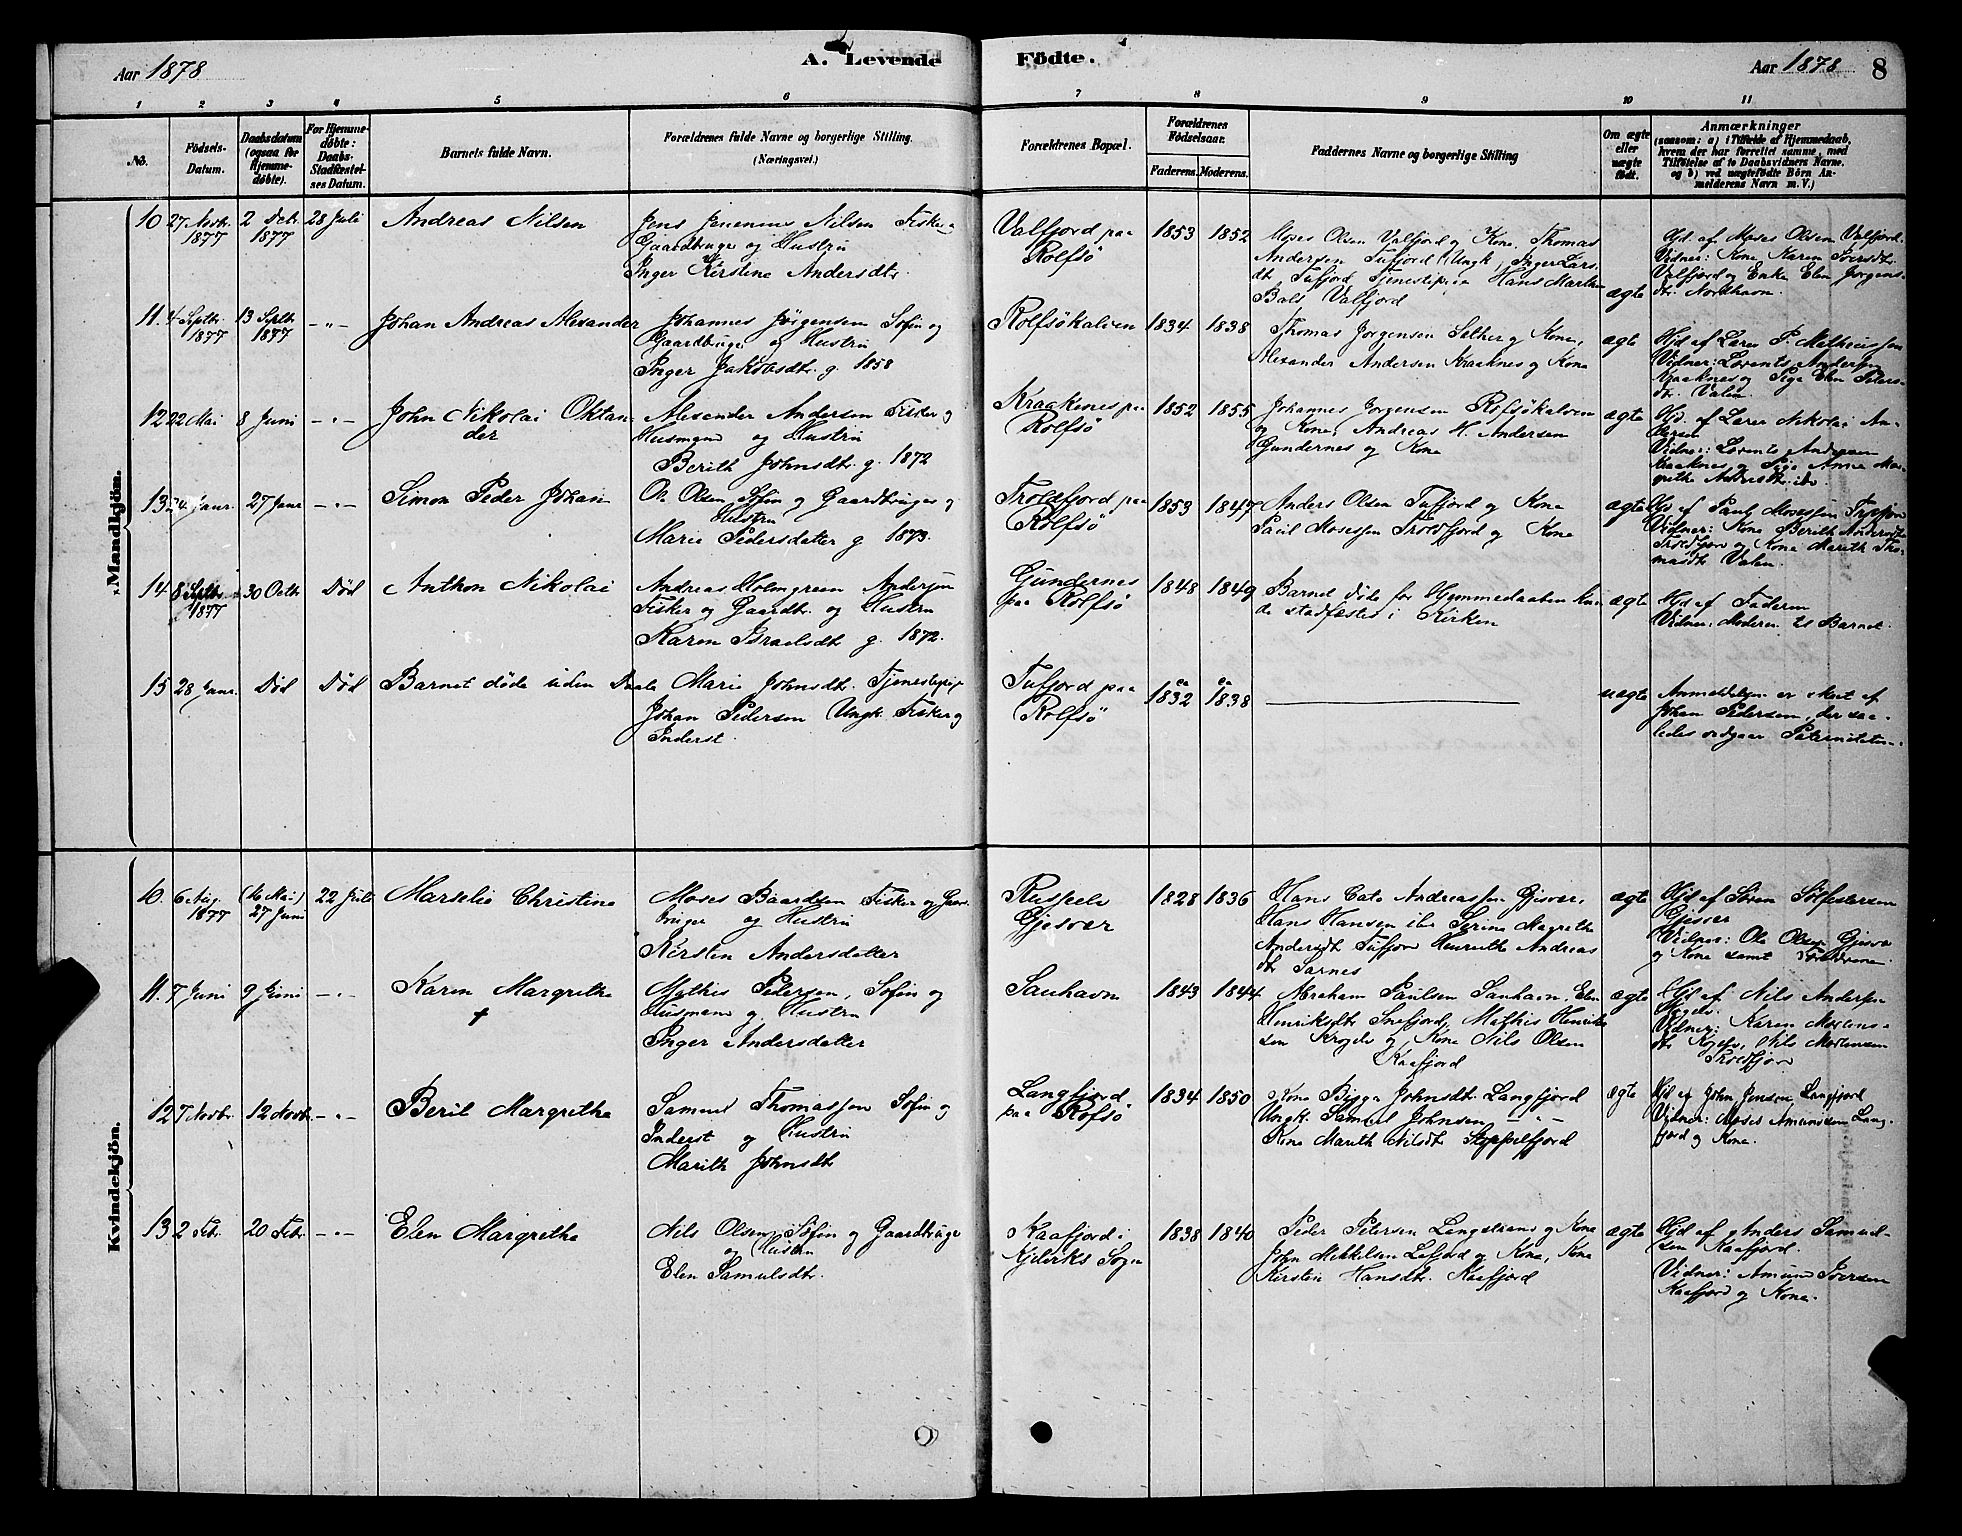 Aar 1878
A. Levende Födte.
Aar 1878 8
1 2 3 4 5 6 7 8 9 10 11
No.
Födsels-
Datum.
Daabsdatum
(ogsaa for
Hjemme-
döbte).
For Hjemme-
döbte:
Daabs-
Stadfæstel-
ses Datum.
Barnets fulde Navn.
Forældrenes fulde Navne og borgerlige Stilling.
(Næringsvei.)
Forældrenes Bopæl.
Forældrenes
Födselsaar.
Faderens. Moderens.
Faddernes Navne og borgerlige Stilling
Om ægte
eller
uægte
födt.
Anmærkninger
(saasom: a) i Tilfælde af Hjemmedaab,
hvem der har forrettet samme, med
Tilföielse af to Daabsvidners Navne,
og b) ved uægtefödte Börn An-
melderens Navn m. V.)
Mandkjön.
10 27 Novbr. 1877
2 Dcbr. 1877
28 Juli
Andreas Nilsen
Jens Jenenius Nilsen Fisker
Gaardbruger og Hustru
Inger Kirstine Andersdtr.
Valfjord paa
Rolfsö
1853 1852
Moses Olsen Valfjord og Kone, Thomas
Andersen Tufjord Ungk, Inger Lars
dtr Tufjord Tjenestepige Hans Martin
Bals Valfjord
ægte
Hjd. af Moses Olsen Valfjord.
Vidner: Kone Karen Iversdtr.
Valfjord og Enke Elen Jorgens-
dtr. Nordhavn.
11. 4 Septbr. 1877
13 Septbr 1877
-„-
Johan Andreas Alexander
Johannes Jörgensen Söfin og
Gaardbruger og Hustru
Inger Jakobsdtr. g. 1858
Rolfsökalven
1834 1838
Thomas Jorgensen Selher og Kone,
Alexander Andersen Kraaknes og Kone
ægte
Hjd af Lærer P. Mathiessen
Vidner: Lorents Andersen
Kraaknes og Pige Elen Peters-
dtr. Valen.
12 22 Mai
8 Juni
-„-
John Nikolai Oktan
der
Alexander Andersen Fisker og
Husmand og Hustru
Berith Johnsdtr. g. 1872
Kraakenes paa
Rolfsö
1852 1855
Johannes Jorgensen Rolfsökalven
og Kone, Andreas H. Andersen
Gundernes og Kone
ægte
Hd. af Lærer Nikolai An-
dersen
Vidner: Lorents Andersen
Kraaknes og Pige Anne Mar-
grethe Andersdtr. ibr.
13 24 Janr.
27 Janr
-„-
Simon Peder Johan
Ole Olsen, Söfin og Gaardbruger og
Hustru
Marie Pedersdatter g 1873.
Troldfjord paa
Rolfsö
1853 1847
Anders Olsen Tufjord og Kone
Paul Mosessen Troldfjord og Kone
ægte
Hjd af Paul Mosessen
Vidner: Kone Berith Andersdtr
Troldfjord og Kone Marith Tho-
masdtr Valen.
14 8 Septbr. 1877
30 Octbr
Död
Anthon Nikolai
Andreas Holmgreen Andersen
Fisker og Gaardbr. og Hustru
Karen Israelsdtr g. 1872.
Gundernes
paa Rolfsö
1848 1849
Barnet döde för Hjemmedaaben kun
de stadfæstes i Kirken
ægte
Hjd af Faderen
Vidner: Moderen til Barnet.
15 28 Janr.
Död
Död
Barnet döde uden Daab
Marie Johnsdtr. Tjenestepige
Johan Pedersen Ungk. Fisker og
Inderst.
Tufjord paa
Rolfsö
ca 1832 ca 1838
uægte
Anmeldelsen er skeet af
Johan Pedersen, der saa-
ledes vedgaar Paterniteten.
Kvindekjön.
10. 6 Aug. 1877
(16 Mai) 27 Juni
22 Juli
Marselie Christine
Moses Baardsen Fisker og Gaard
bruger og Hustru
Kirsten Andersdatter
Russeels
Gjesvær
1828 1836
Hans Cato Andreassen Gjesvær,
Hans Hansen ibr Serine Magrethe
Andersdtr Tufjord Henrikke Andreas
dtr Sarnes
ægte
Hjd af Sören Sölfestersen
Gjesvær
Vidner: Ole Olsen Gjesvær
og Kone samt Forældrene.
11. 7 Juni
9 Juni
-„-
Karen Margrethe
+
Mathis Pedersen, Söfin og
Husmand og Hustru
Inger Andersdatter
Sauhavn
1843 1844
Abraham Paulsen Sauhavn, Elen
Henriksdtr Snefjord, Mathis Henrik
sen Krogelv og Kone Nils Olsen
Kaafjord
ægte
Hjd. af Nils Andersen
Vidner: Karen Mortens-
dtr. Nils Mortensen
Troldfjord
12 7 Novbr.
12 Novbr.
-„-
Berit Margrethe
Samuel Thomassen Söfin og
Inderst og Hustru
Marith Johnsdtr
Langfjord
paa Rolfsö
1834 1850
Kone Bigga Johnsdtr. Langfjord
Ungk. Samuel Johnsen -„-
Kone Marith Nilsdtr Slyppelfjord
ægte
Hjd af John Jensen Langfjord
Vidner: Moses Amundsen Lang-
fjord og Kone.
13 2 Febr.
20 Febr.
-„-
Elen Margrethe
Nils Olsen Söfin og Gaardbruger
og Hustru
Elen Samulsdtr.
Kaafjord i
Kjelviks Sogn
1838 1840
Peder Petersen Langstrand og Kone
John Mikkelsen Lafjord og Kone, Kone
Kirsten Hansdtr. Kaafjord
ægte
Hjd af Anders Samuel-
sen Kaafjord.
Vidner: Amund Iversen
Kaafjord og Kone.